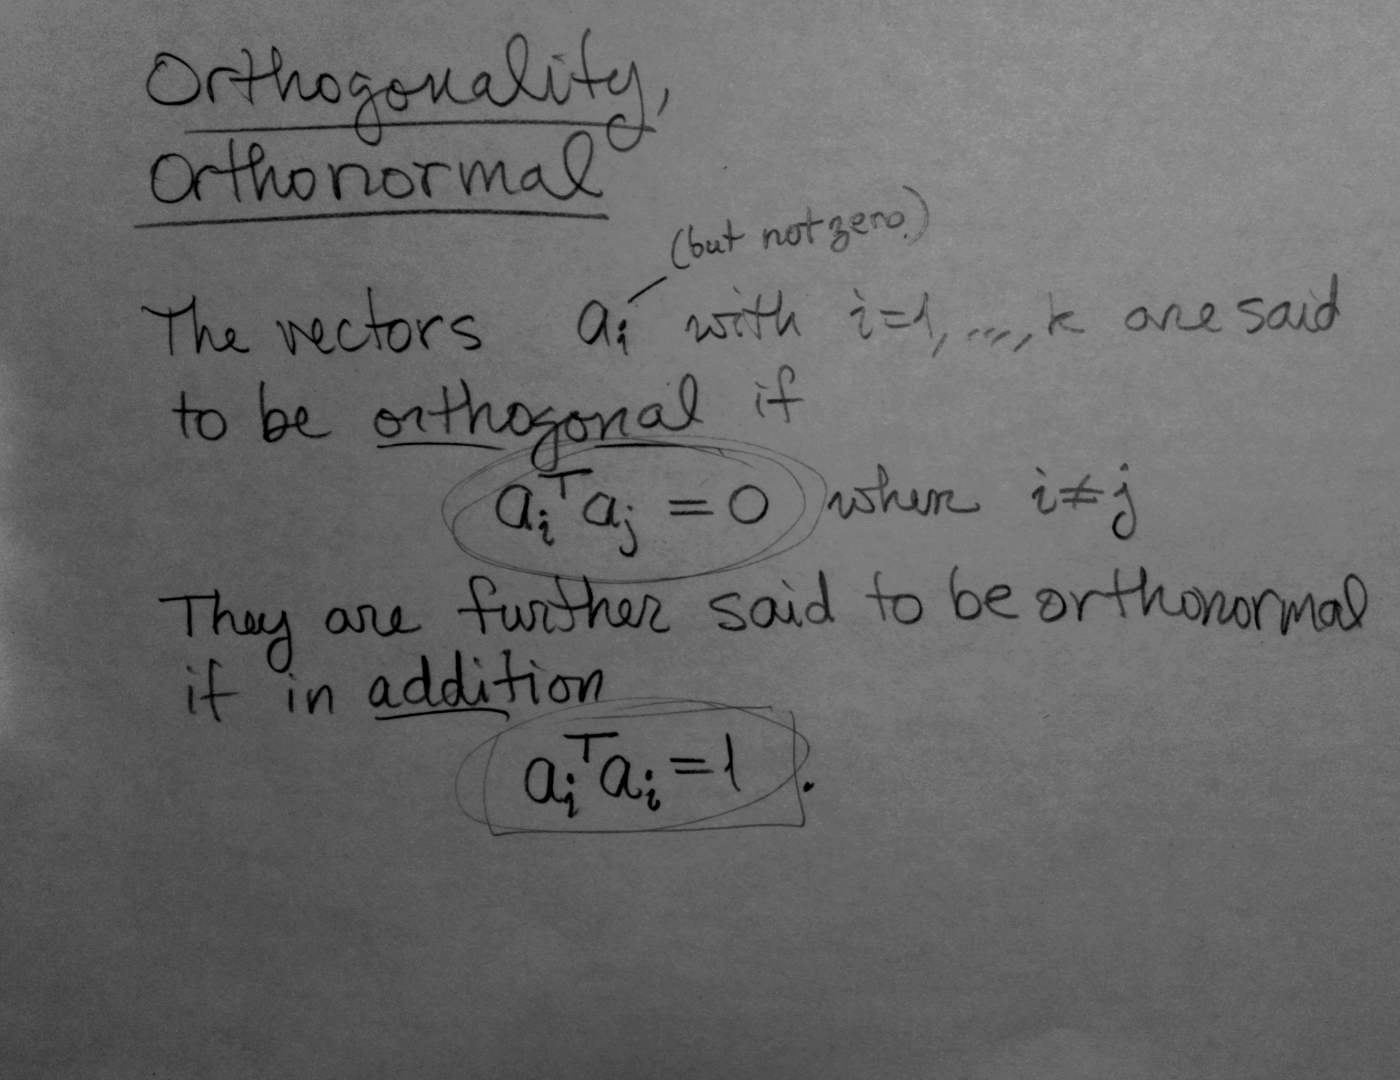 Orthogonality,
Orthonormal
(but not zero.)
The vectors aᵢ with i=1, ..., k are said
to be orthogonal if
aᵢᵀaⱼ = 0 when i≠j
They are further said to be orthonormal
if in addition
aᵢᵀaᵢ=1.